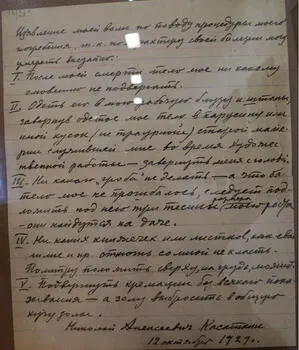 Изъявление моей воли по поводу процедуры моего
погребения, т.к. по характеру своей болезни могу
умереть внезапно:
I. После моей смерти тело мое ни какому
омовению не подвергать.
II. Одеть его в мою рабочую блузу и штаны,
завернув одетое мое тело в парусину или
иной кусок (не траурной) старой мате-
рии служившей мне во время художес-
твенной работы — завернуть меня с головой.
III. Ни какого гроба не делать — а что бы
тело мое не прогибалось, следует под-
ложить под него три тесины, размера моего роста
они найдутся на даче.
IV. Ни каких книжечек или листков, как
и пр. отнюдь со мной не класть.
Палитру положить сверху, на грудь, можно.
V. Подвергнуть кремации без всякого пока-
зывания — а золу выбросить в общую
кучу золы.
Николай Алексеевич Касаткин
12 октября 1929 г.